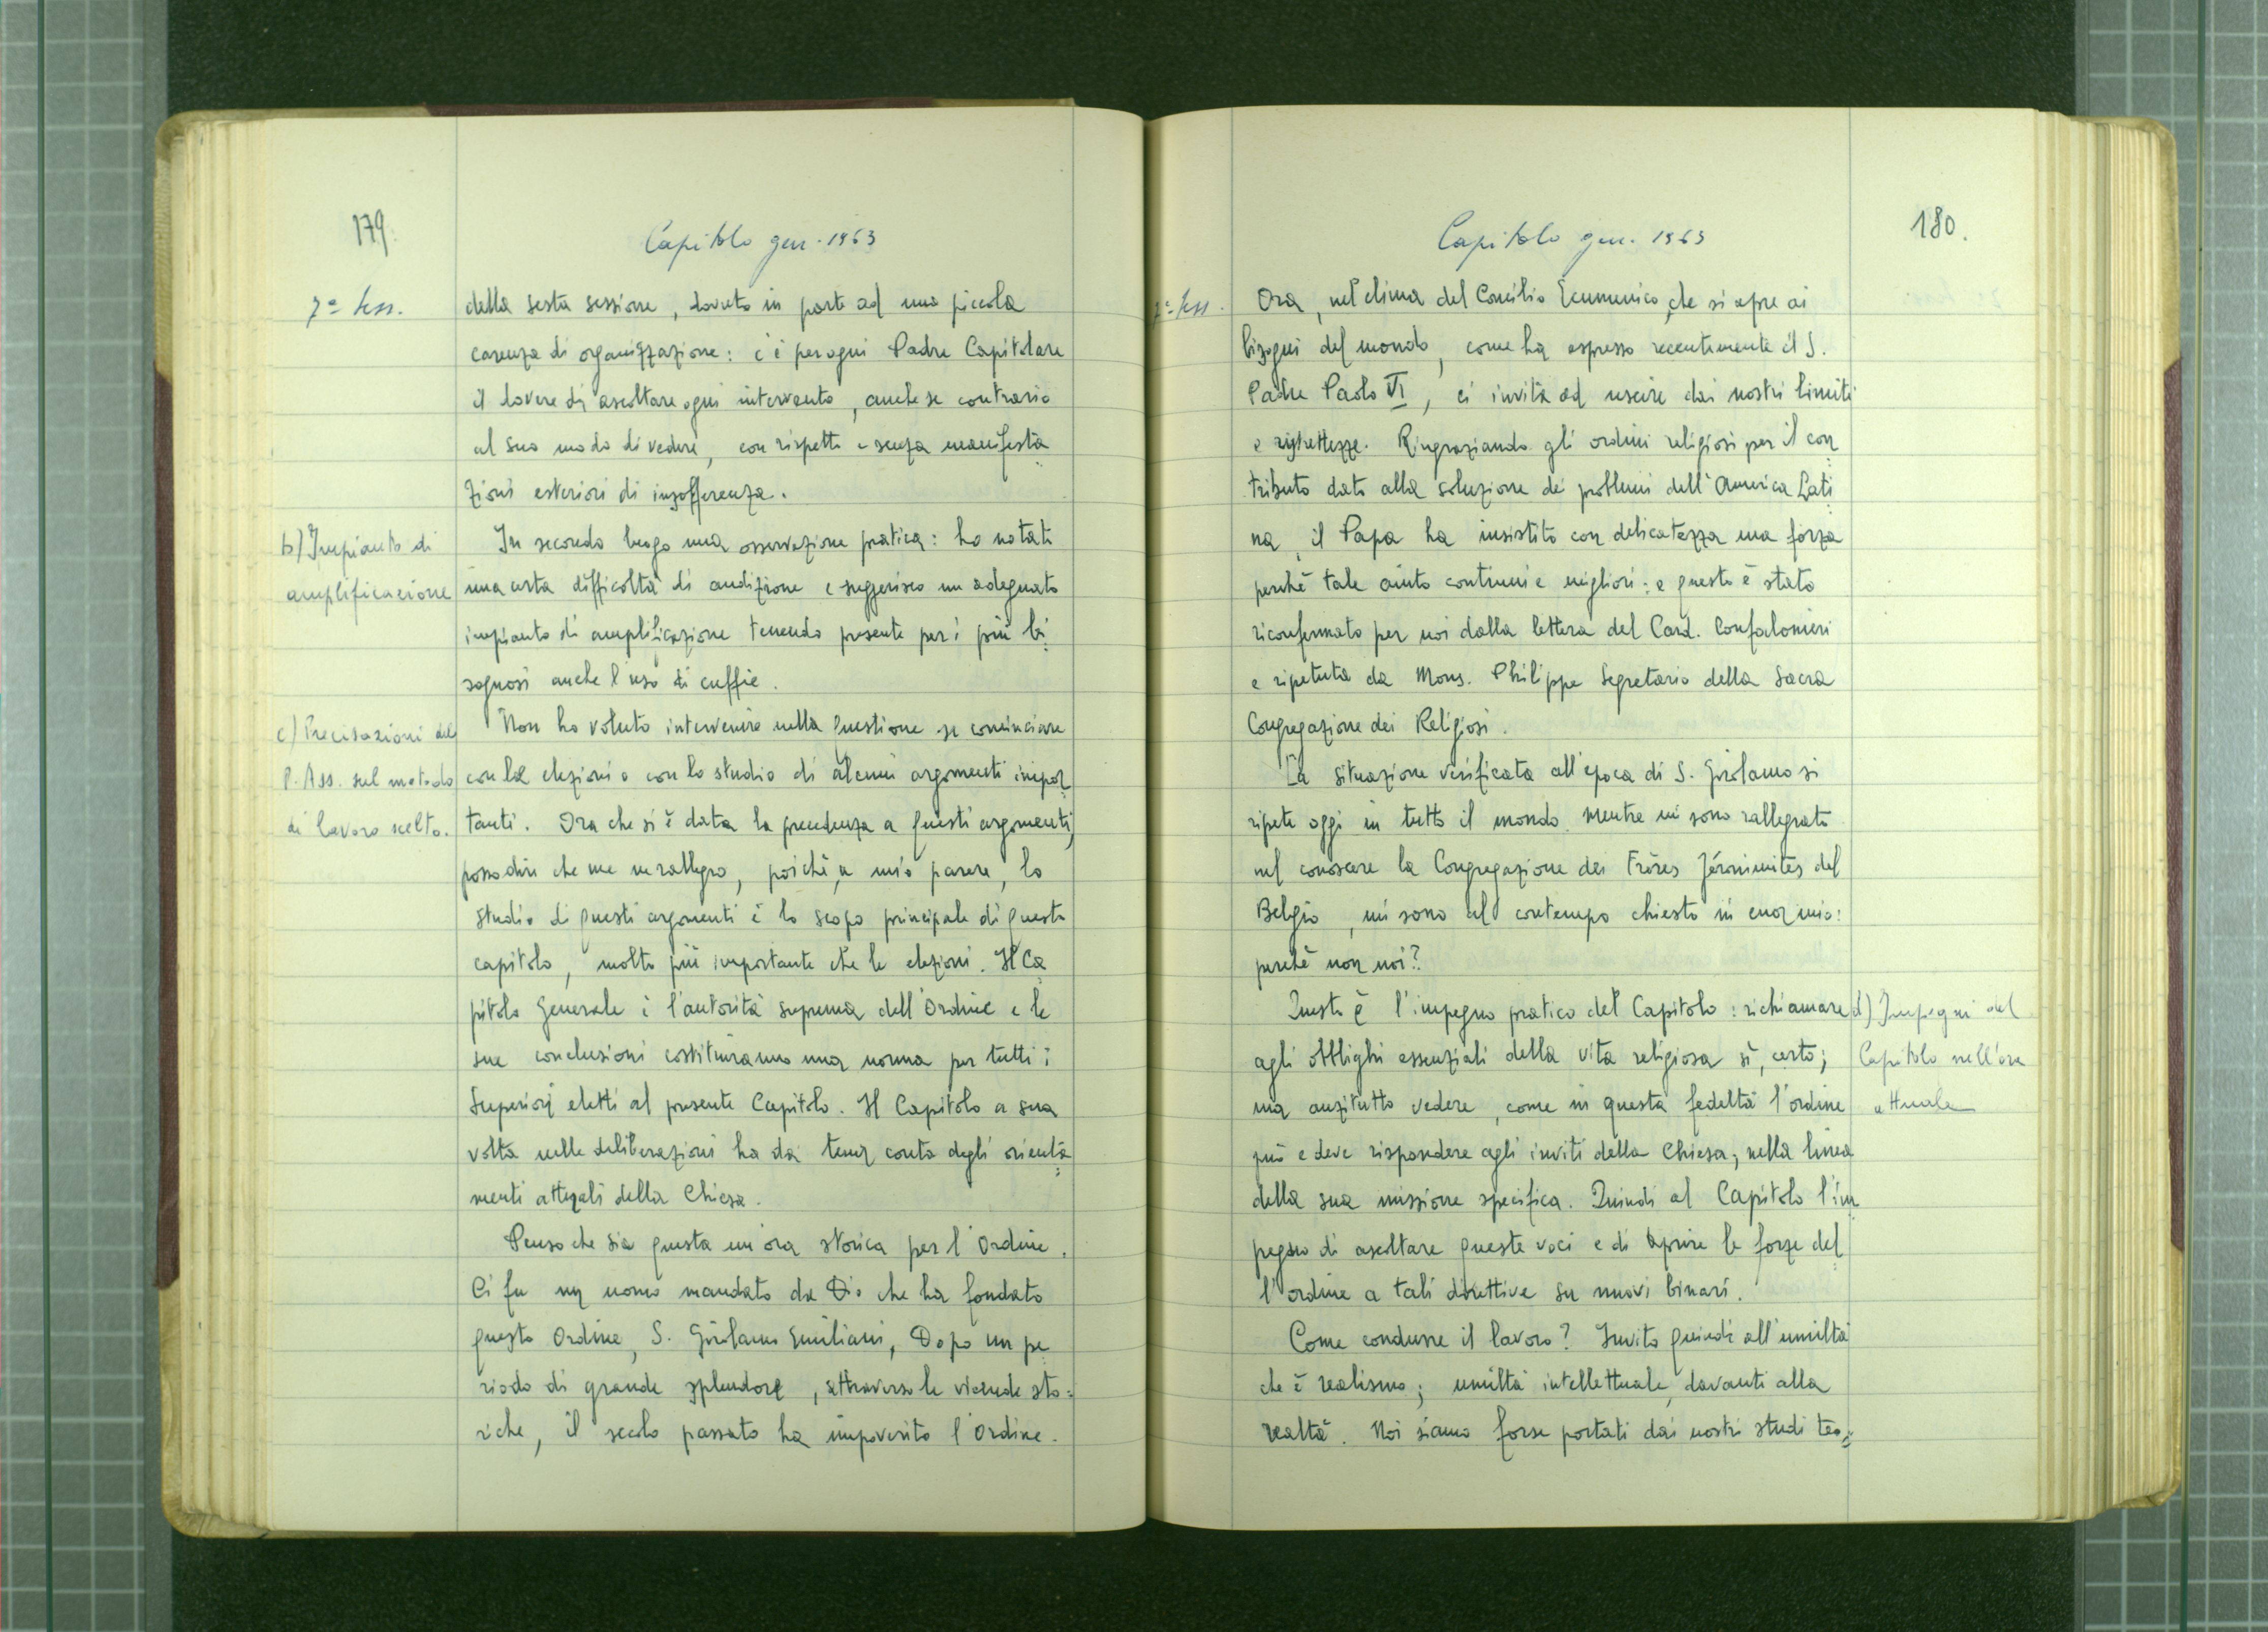 179.
Capitolo gen. 1963
7ª sess.
della sesta sessione, dovuto in parte ad una piccola
carenza di organizzazione: c'è per ogni Padre Capitolare
il dovere di ascoltare ogni intervento, anche se contrario
al suo modo di vedere, con rispetto e senza manifesta
zioni esteriori di insofferenza.
b) Impianto di
amplificazione
In secondo luogo una osservazione pratica: ho notato
una certa difficoltà di audizione e suggerisco un adeguato
impianto di amplificazione tenendo presente per i più bi
sognosi anche l'uso di cuffie.
c) Precisazioni del
P. Ass. sul metodo
di lavoro scelto.
Non ho voluto intervenire nella questione se cominciare
con le elezioni o con lo studio di alcuni argomenti impor
tanti. Ora che si è data la precedenza a questi argomenti,
posso dire che me ne rallegro, poichè, a mio parere, lo
studio di questi argomenti è lo scopo principale di questo
capitolo, molto più importante che le elezioni. Il Ca
pitolo Generale è l'autorità suprema dell'Ordine e le
sue conclusioni costituiranno una norma per tutti i
Superiori eletti al presente Capitolo. Il Capitolo a sua
volta nelle deliberazioni ha da tener conto degli orienta
menti attuali della Chiesa.
Penso che sia questa un'ora storica per l'Ordine.
Ci fu un uomo mandato da Dio che ha fondato
questo Ordine, S. Girolamo Emiliani, Dopo un pe
riodo di grande splendore, attraverso le vicende sto=
riche, il secolo passato ha impoverito l'Ordine.
180.
Capitolo gen. 1963
7ª sess.
Ora, nel clima del Concilio Ecumenico, che si apre ai
bisogni del mondo, come ha espresso recentemente il S.
Padre Paolo VI, ci invita ad uscire dai nostri limiti
e ristrettezze. Ringraziando gli ordini religiosi per il con
tributo dato alla soluzione dei problemi dell'America Lati
na, il Papa ha insistito con delicatezza ma forza
perchè tale aiuto continui e migliori: e questo è stato
riconfermato per noi dalla lettera del Card. Confalonieri
e ripetuta da Mons. Philippe Segretario della Sacra
Congregazione dei Religiosi.
La situazione verificata all'epoca di S. Girolamo si
ripete oggi in tutto il mondo. Mentre mi sono rallegrato
nel conoscere la Congregazione dei Frères Jéronimites del
Belgio, mi sono al contempo chiesto in cuor mio:
perchè non noi?
d) Impegni del
Capitolo nell'ora
attuale
Questo è l'impegno pratico del Capitolo: richiamare
agli obblighi essenziali della vita religiosa sì, certo;
ma anzitutto vedere, come in questa fedeltà l'ordine
può e deve rispondere agli inviti della Chiesa, nella linea
della sua missione specifica. Quindi al Capitolo l'im
pegno di ascoltare queste voci e di aprire le forze del
l'ordine a tali direttive su nuovi binari.
Come condurre il lavoro? Invito quindi all'umiltà
che è realismo; umiltà intellettuale, davanti alla
realtà. Noi siamo forse portati dai nostri studi teo=